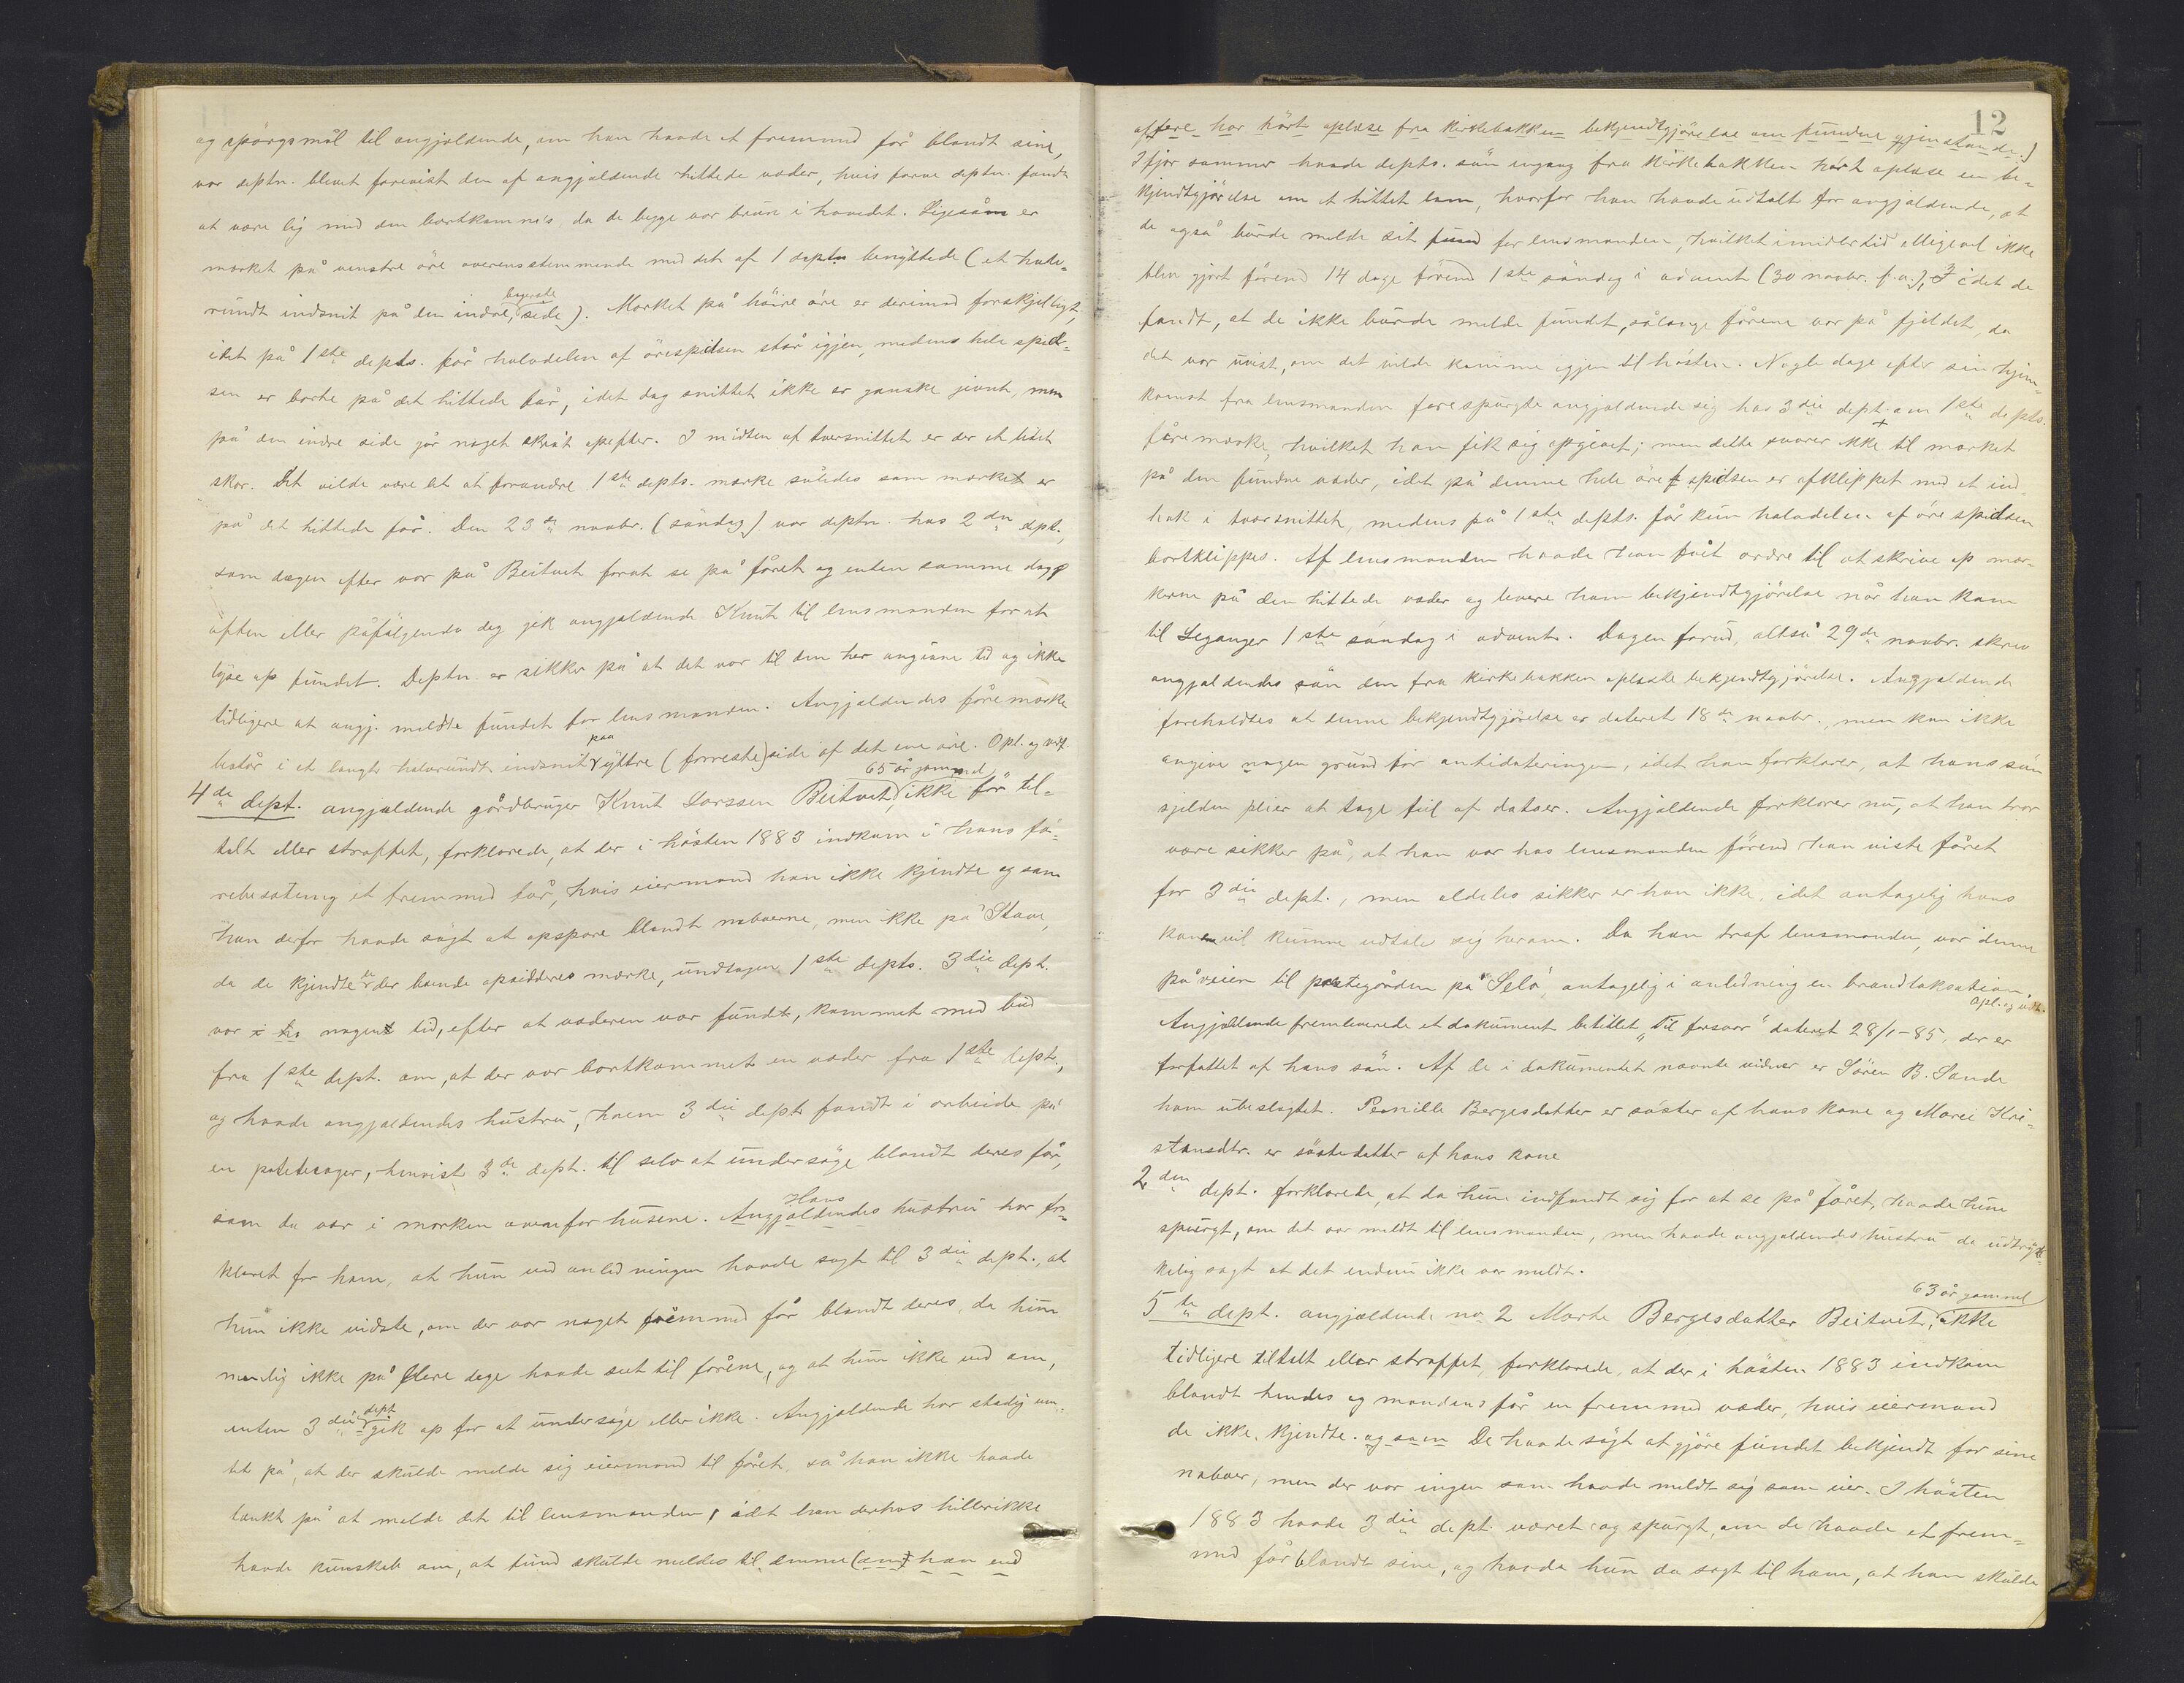 og spörgsmål til angjældende, om han havde et fremmed får blandt sine,
var deptn. blevet forevist den af angjældende hittede væder, hvis farve deptn. fandt
at være lig med den bortkomne's, da de begge var brun i hovedet. Ligesåm er
mærket på venstre öre overensstemmende med det af 1 deptn benyttede (et halv-
rundt indsnit på den indre, bagerste side). Mærket på höire öre er derimod forskjelligt,
idet på 1ste depts. får halvdelen af örespidsen står igjen, medens hele spid-
sen er borte på det hittede får, idet dog snittet ikke er ganske jevnt, men
på den indre side går noget skråt opefter. I midten af tversnittet er der et lidet
skar. Det vilde være let at forandre 1ste depts. mærke således som mærket er
på det hittede får. Den 23de novbr. (söndag) var deptn. hos 2den dpt.,
som dagen efter var på Beitvet forat se på fåret og enten samme dags
aften eller påfölgende dag gik angjældende Knut til lensmanden for at
lyse op fundet. Deptn. er sikker på at det var til den her angivne tid og ikke
tidligere at angj. meldte fundet for lensmanden. Angjældendes fåremærke
består i et langt halvrundt indsnit paa yttre (forreste) side af det ene öre. Opl. og vedt.
4de dept. angjældende gårdbruger Knut Larssen Beitvet, 65 år gammel, ikke för til-
talt eller straffet, forklarede, at der i hösten 1883 indkom i hans få-
rebesætning et fremmed får, hvis eiermand han ikke kjendte og som
han derfor havde sögt at opspore blandt naboerne, men ikke på Stave,
da de kjendte de der boende opsidderes mærke, undtagen 1ste depts. 3die dept.
var i hö nogen tid, efter at væderen var fundt, kommet med bud
fra 1ste dept. om, at der var bortkommet en væder fra 1ste dept.,
og havde angjældendes hustru, hvem 3die dept. fandt i arbeide på
en potetesager, henvist 3de dept. til selv at undersöge blandt deres får,
som da var i marken ovenfor husene. Angjældendes Hans hustru har for-
klaret for ham, at hun ved anledningen havde sagt til 3die dept., at
hun ikke vidste, om der var noget fremmed får blandt deres, da hun
nemlig ikke på flere dage havde seet til fårene, og at hun ikke ved om,
enten 3die dept gik op for at undersöge eller ikke. Angjældende har stadig ven-
tet på, at der skulde melde sig eiermand til fåret, så han ikke havde
tænkt på at melde det til lensmanden, idet han derhos hller ikke
havde kunskab om, at fund skulde meldes til denne (omt han end
12
oftere har hört oplæse fra kirkebakken bekjendtgjörelse om fundne gjenstande.)
I fjor sommer havde depts. sön engang fra kirkebakken hört oplæse en be-
kjendtgjörelse om et hittet lam, hvorfor han havde udtalt for angjældende, at
de også burde melde sit fund for lensmanden, hvilket imidlertid alligevel ikke
blev gjort förend 14 dage förend 1ste söndag i advent (30 novbr. f.a.), idet de
fandt, at de ikke burde melde fundet, sålænge fårene var på fjeldet, da
det var uvist, om det vilde komme igjen til hösten. Nogle dage efter sin hjem-
komst fra lensmanden forespurgte angjældende sig hos 3die dept. om 1ste depts.
fåremærke, hvilket han fik sig opgivet; men dette svarer ikke til mærket
på den fundne væder, idet på denne hele örespidsen er afklippet med et ind-
hak i tversnittet, medens på 1ste depts. får kun halvdelen af örespidsen
bortklippes. Af lensmanden havde han fåit ordre til at skrive op mær-
kerne på den hittede væder og levere ham bekjendtgjörelse når han kom
til Leganger 1ste söndag i advent. Dagen forud, altså 29de novbr. skrev
angjældendes sön den fra kirkebakken oplæste bekjendtgjörelse. Angjældende
foreholdtes at denne bekjendtgjörelse er dateret 18de novbr., men kan ikke
angive nogen grund for antidateringen, idet han forklarer, at hans sön
sjelden pleier at tage feil af datoer. Angjældende forklarer nu, at han tror
være sikker på, at han var hos lensmanden förend han viste fåret
for 3die dept., men aldeles sikker er han ikke, idet antagelig hans
kone vil kunne udtale sig herom. Da han traf lensmanden, var denne
på veien til prestegården på Selö, antagelig i anledning en brandtaksation.
Opl. og vedt.
Angjældende fremleverede et dokument betitlet "Til forsvar" dateret 28/1-85, der er
forfattet af hans sön. Af de i dokumentet nævnte vidner er Sören B. Sande
ham ubeslægtet. Pernille Bergesdatter er söster af hans kone og Marie Kri-
stensdtr. er söstedatter af hans kone
2den dept. forklarede, at da hun indfandt sig for at se på fåret, havde hun
spurgt, om det var meldt til lensmanden, men havde angjældendes hustru da udtryk-
kelig sagt at det endnu ikke var meldt.
5te dept. angjældende no 2 Marte Bergesdatter Beitvet, 63 år gammel, ikke
tidligere tiltalt eller straffet, forklarede, at der i hösten 1883 indkom
blandt hendes og mandens får en fremmed væder, hvis eiermand
de ikke kjendte. og som De havde sögt at gjöre fundet bekjendt for sine
naboer, men der var ingen som havde meldt sig som eier. I hösten
1883 havde 3die dept. været og spurgt, om de havde et frem-
med får blandt sine, og havde hun da sagt til ham, at han skulde